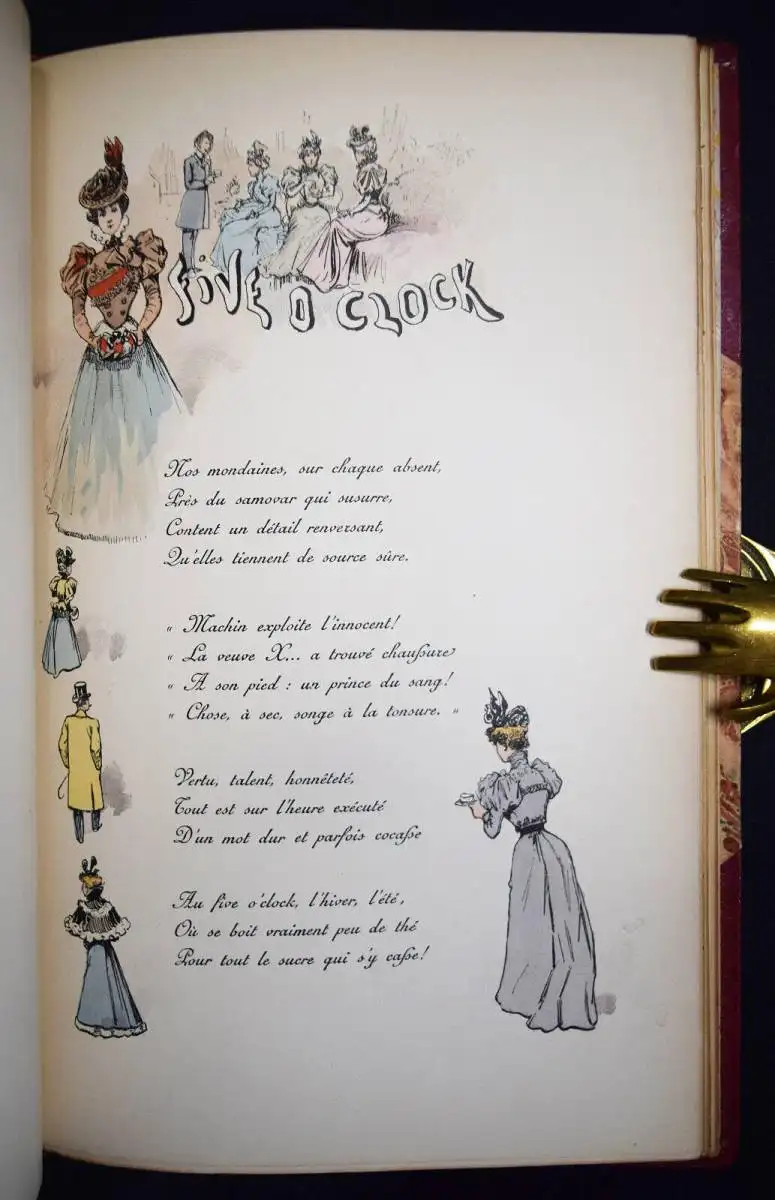 FIVE O CLOCK
Nos mondaines, sur chaque absent,
Près du samovar qui susurre,
Content un détail renversant,
Qu'elles tiennent de source sûre.
" Machin exploite l'innocent!
" La veuve X... a trouvé chaussure
" A son pied : un prince du sang!
" Chose, à sec, songe à la tonsure. "
Vertu, talent, honnêteté,
Tout est sur l'heure exécuté
D'un mot dur et parfois cocasse
Au five o'clock, l'hiver, l'été,
Où se boit vraiment peu de thé
Pour tout le sucre qui s'y casse!